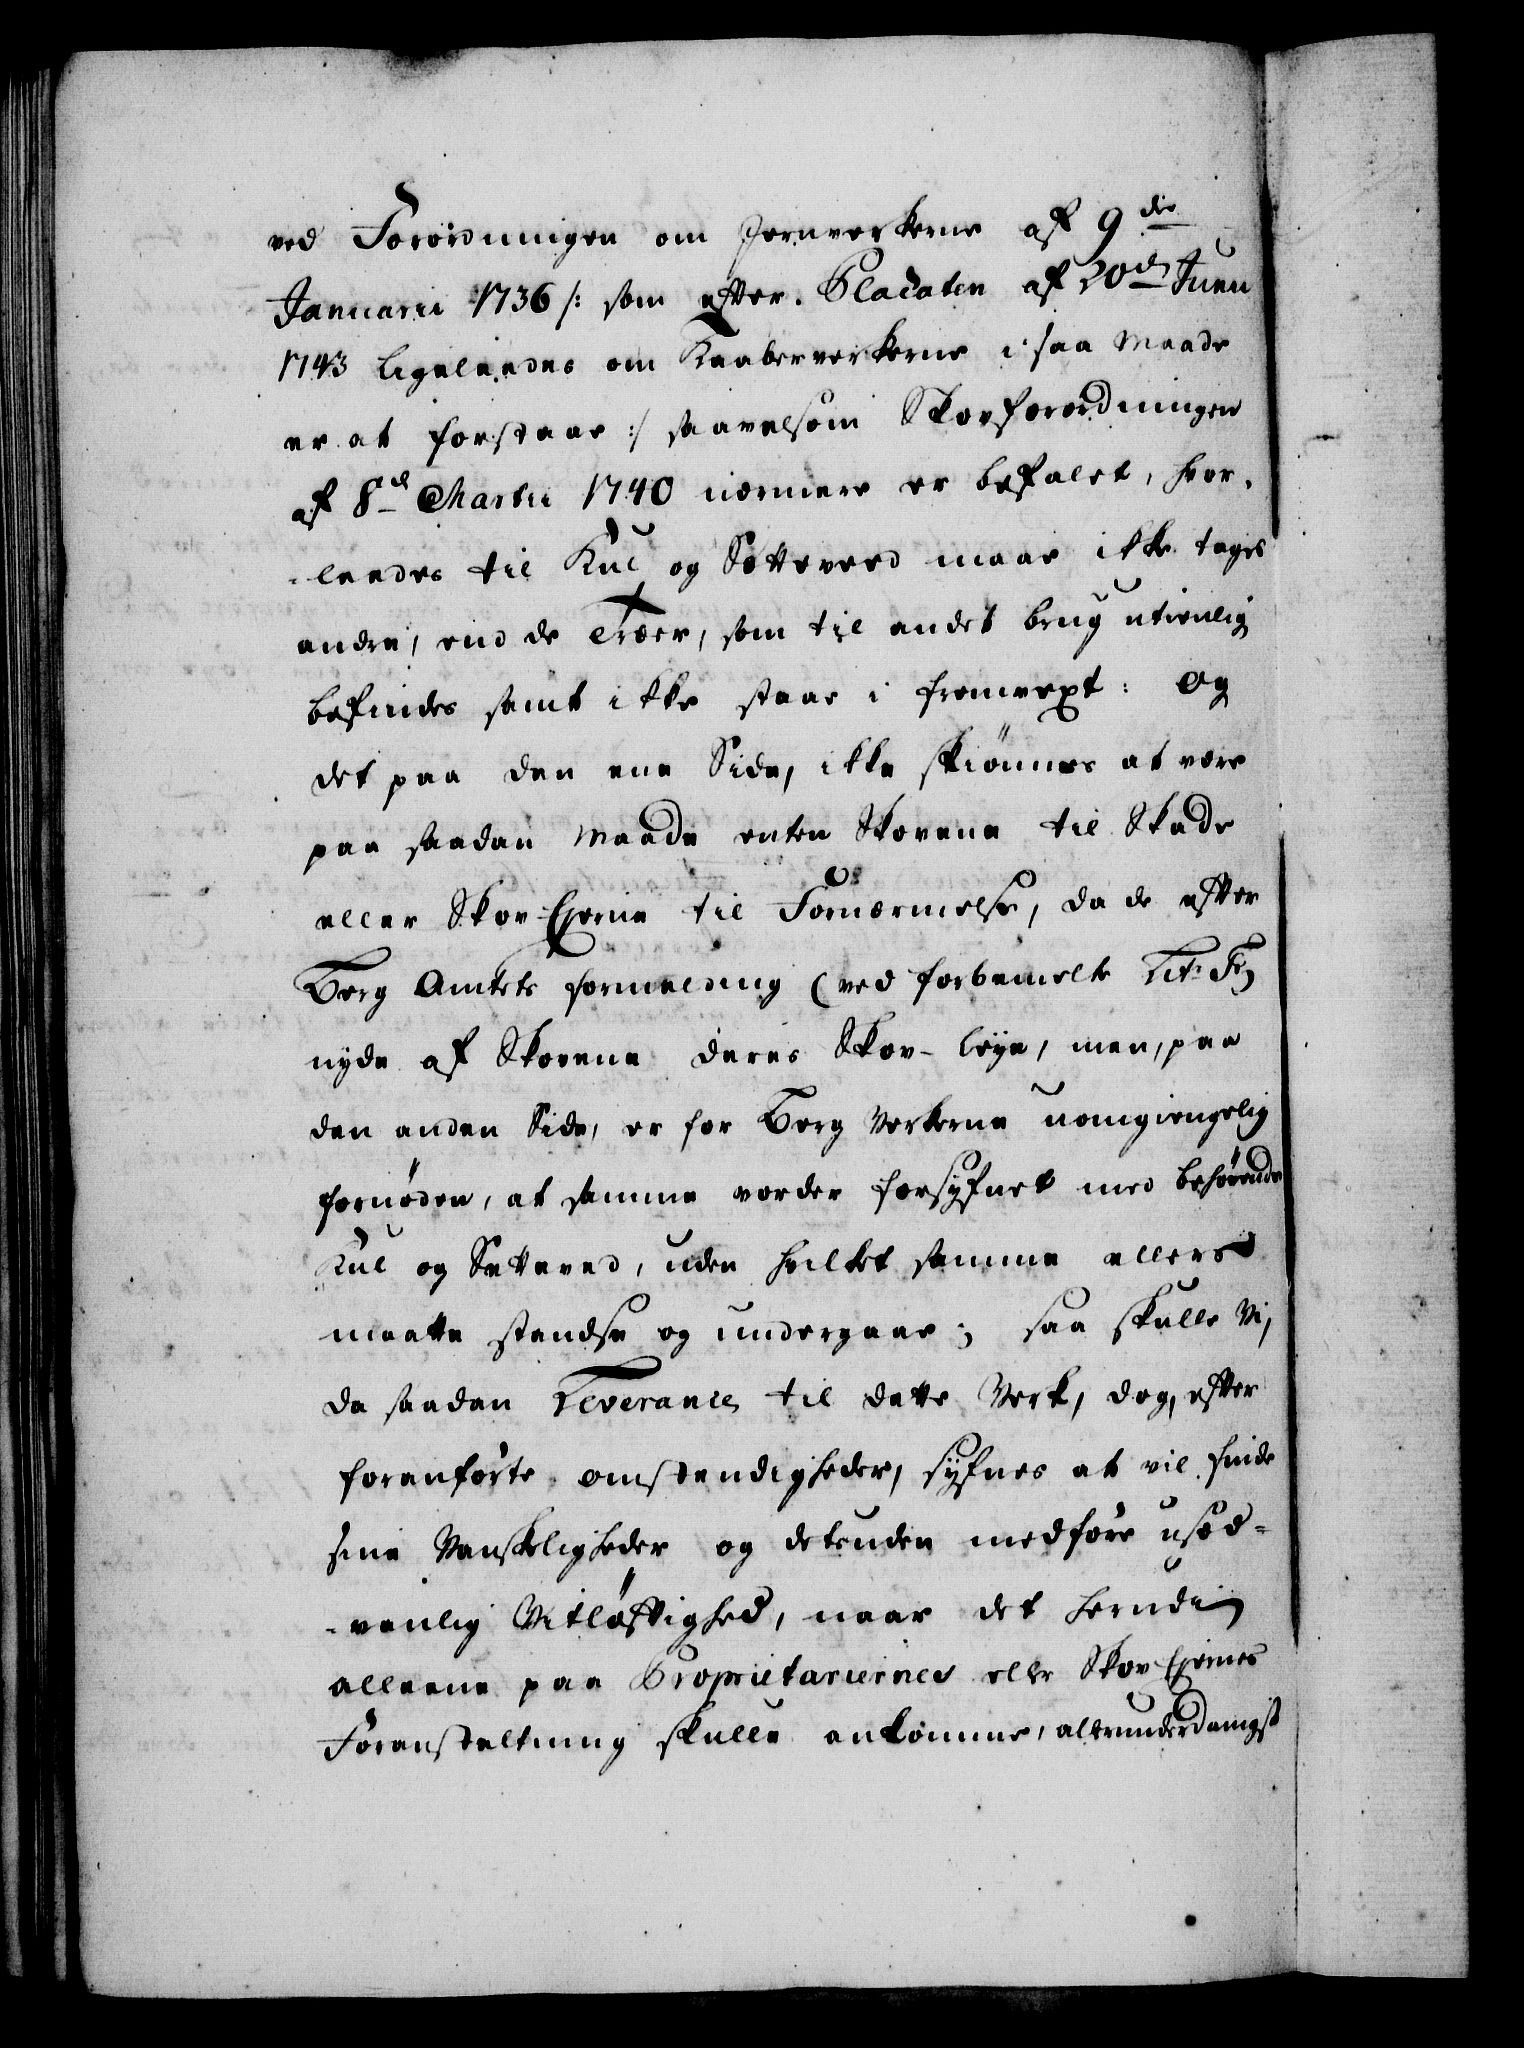 ved Forordningen om Jernverkerne af 9de
Januarii 1736 /: som efter Placaten af 20de Junii
1743 ligeleedes om Kaaberverkerne i saa Maade
er at forstaae :/ saavelsom Skovforordningen
af 8d Martii 1740 nermere er befalet, hvor-
-leedes til Kul og Setteveed maae ikke tages
andre, end de Træer, som til andet brug utienlig
befindes samt ikke staae i fremvext: og
det paa den ene Side, ikke skiönnes at være
paa saadan Maade enten Skovene til Skade
eller Skov-Ejerne til Fornærmelse, da de efter
Berg Amtets formelding (ved forbemelte Litr F)
nyde af Skovene deres Skov-leye, men, paa
den anden Side, er for Berg Verkerne uomgiengelig
fornöden, at samme vorder forsyfnet med behörende
Kul og Setteved, uden hvilket samme ellers
maatte standse og undergaae; saa skulle Vi,
da saadan Leverance til dette Verk, dog, efter
foranförte omstendigheder, syfnes at vil finde
sine Vanskeligheder og desuden medföre usæd-
-vanlig Vitlöftighed, naar det herudi
alleene paa Proprietariernes eller Skov Ejernes
Foranstaltning skulle ankomme, allerunderdanigst